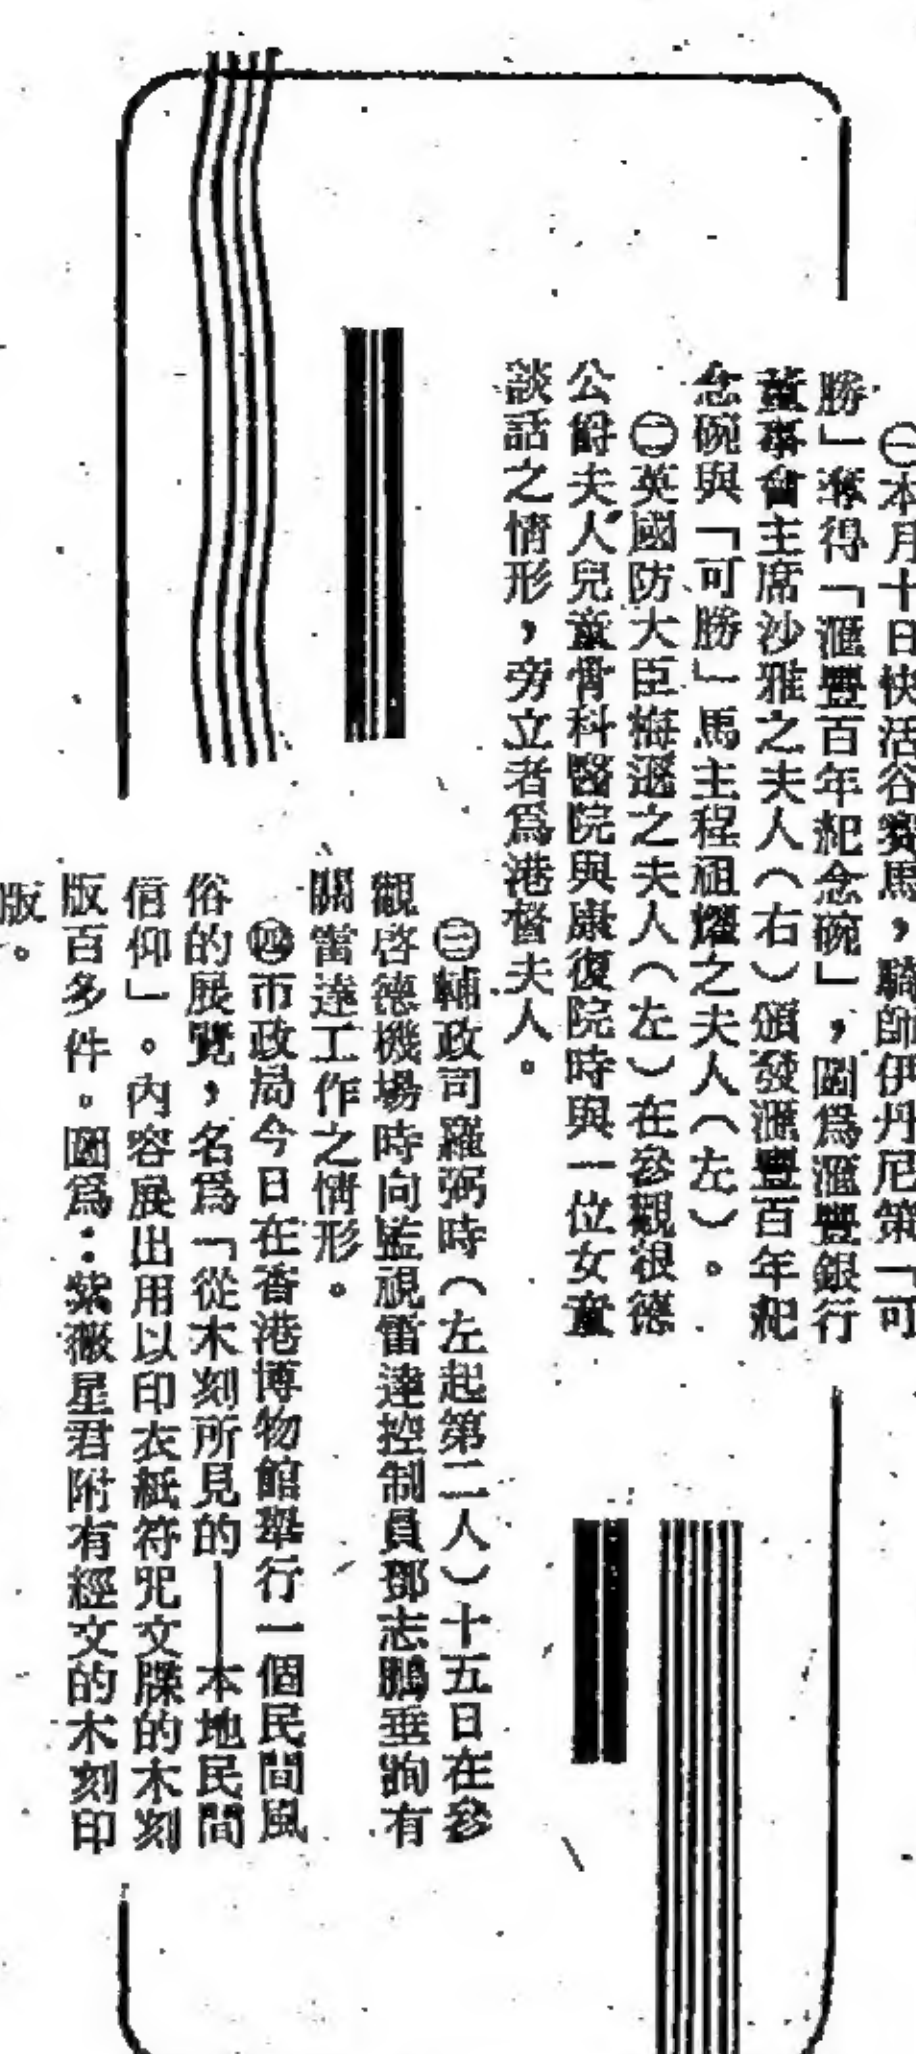 ㊀本月十日快活谷賽馬，騎師伊丹尼策「可
勝」奪得「滙豐百年紀念碗」，圖爲滙豐銀行
董事會主席沙雅之夫人（右）頒發滙豐百年紀
念碗與「可勝」馬主程祖耀之夫人（左）。
㊁英國防大臣悔遜之夫人（左）在參觀根德
公爵夫人兒童骨科醫院與康復院時與一位女童
談話之情形，旁立者爲港督夫人。
㊂輔政司羅弼時（左起第二人）十五日在參
觀啓德機場時向監視雷達控制員鄧志鵬垂詢有
關雷達工作之情形。
㊃市政局今日在香港博物館舉行一個民間風
俗的展覽，名爲「從木刻所見的——本地民間
信仰」。內容展出用以印衣紙符咒文牒的木刻
版百多件。圖爲：紫薇星君附有經文的木刻印
版。